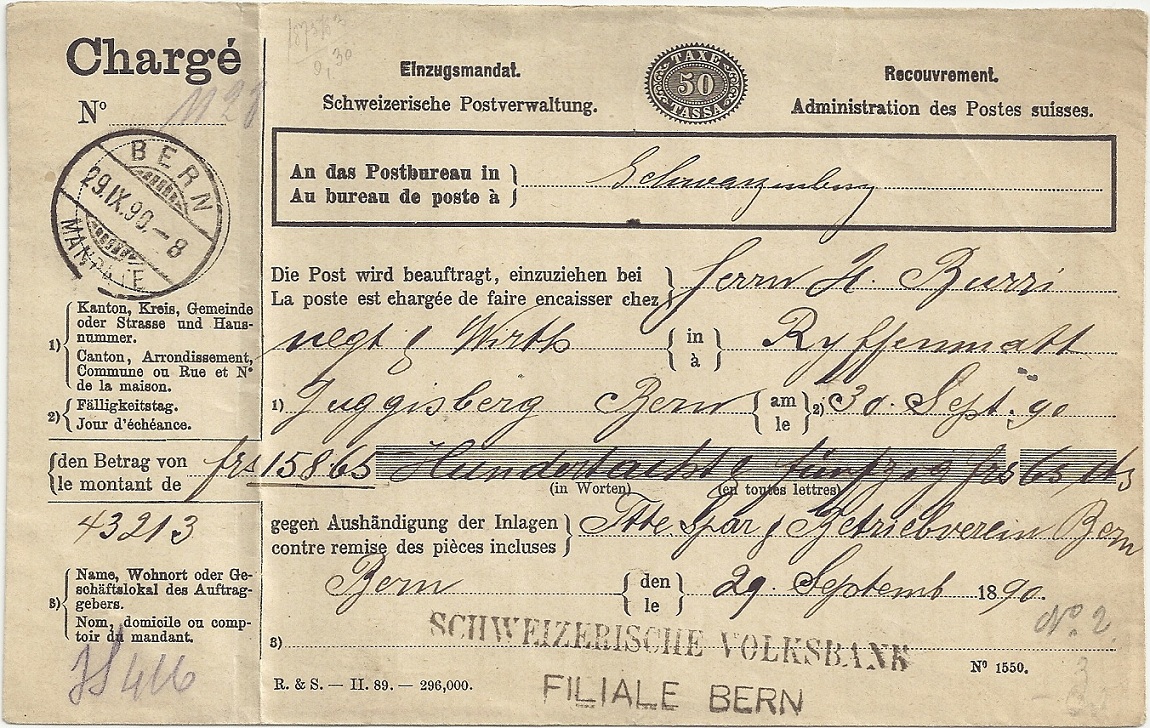 Chargé
Nº 1128
BERN
29.IX.90.-8
MANDATE
Einzugsmandat.
Schweizerische Postverwaltung.
TAXE
50
TASSA
Recouvrement.
Administration des Postes suisses.
An das Postbureau in
Au bureau de poste à
Schwarzenburg
Die Post wird beauftragt, einzuziehen bei
La poste est chargée de faire encaisser chez
Herrn H. Burri
negt & Wirth
in
à
Ryffenmatt
1) Guggisberg Bern
am
le
2) 30. Sept. 90
1) Kanton, Kreis, Gemeinde
oder Strasse und Haus-
nummer.
Canton, Arrondissement,
Commune ou Rue et Nº
de la maison.
2) Fälligkeitstag.
Jour d'échéance.
den Betrag von
le montant de
frs 158.65 Hundertacht & fünfzig frs 65 cts
(in Worten) (en toutes lettres)
43213
gegen Aushändigung der Inlagen
contre remise des pièces incluses
Spar & Betriebverein Bern
Bern
den
le
29. Septemb 1890.
3) Name, Wohnort oder Ge-
schäftslokal des Auftrag-
gebers.
Nom, domicile ou comp-
toir du mandant.
Nº 2
3) SCHWEIZERISCHE VOLKSBANK
FILIALE BERN
Nº 1550.
R. & S. — II. 89. — 296,000.